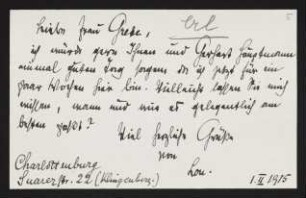 erl
5
Liebe Frau Grete,
ich würde gern Ihnen und Gerhart Hauptmann
einmal guten Tag sagen da ich jetzt für ein
paar Wochen hier bin. Vielleicht lassen Sie mich
wissen, wann und wie es gelegentlich am
besten paßt?
Viel herzliche Grüße
von
Lou.
Charlottenburg
Suarezstr. 22 (Klingenberg.)
1. II 1915